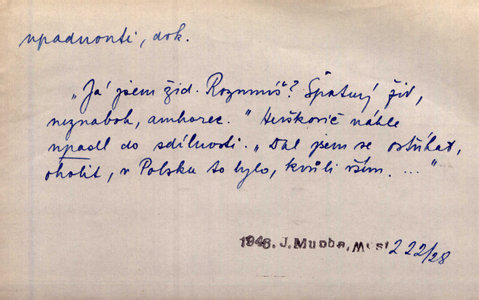 upadnouti, dok.
„Já jsem žid. Rozumíš? Špatný žid,
neznaboh, amhorec." Herškovič náhle
upadl do sdílnosti. „Dal jsem se ostříhat,
oholit, v Polsku to bylo, kvůli vším. ..."
1946. J. Mucha, Most 222/28